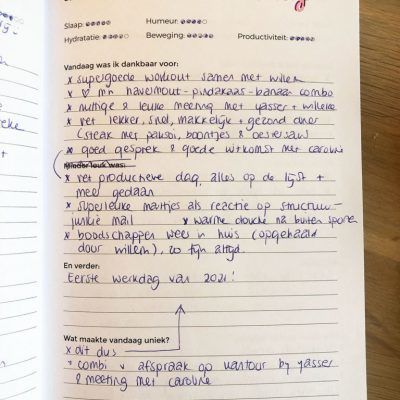 Slaap:
Humeur:
Hydratatie:
Beweging:
Productiviteit:
Vandaag was ik dankbaar voor:
x supergoede workout samen met willem
x ♡ mn havermout-pindakaas-banaan combo
x nuttige & leuke meeting met yasser + willeke
x vet lekker, snel, makkelijk + gezond diner
(steak met paksoi, boontjes & oestersaus)
x goed gesprek & goede uitkomst met caroline
Minder leuk was:
x vet productieve dag, alles op de lijst +
meer gedaan
x superleuke mailtjes als reactie op structuur-
junkie mail x warme douche na buiten sporten
x boodschappen weer in huis (opgehaald
door willem), zo fijn altijd.
En verder:
Eerste werkdag van 2021!
Wat maakte vandaag uniek?
x dit dus
+ combi v afspraak op kantoor bij yasser
& meeting met caroline